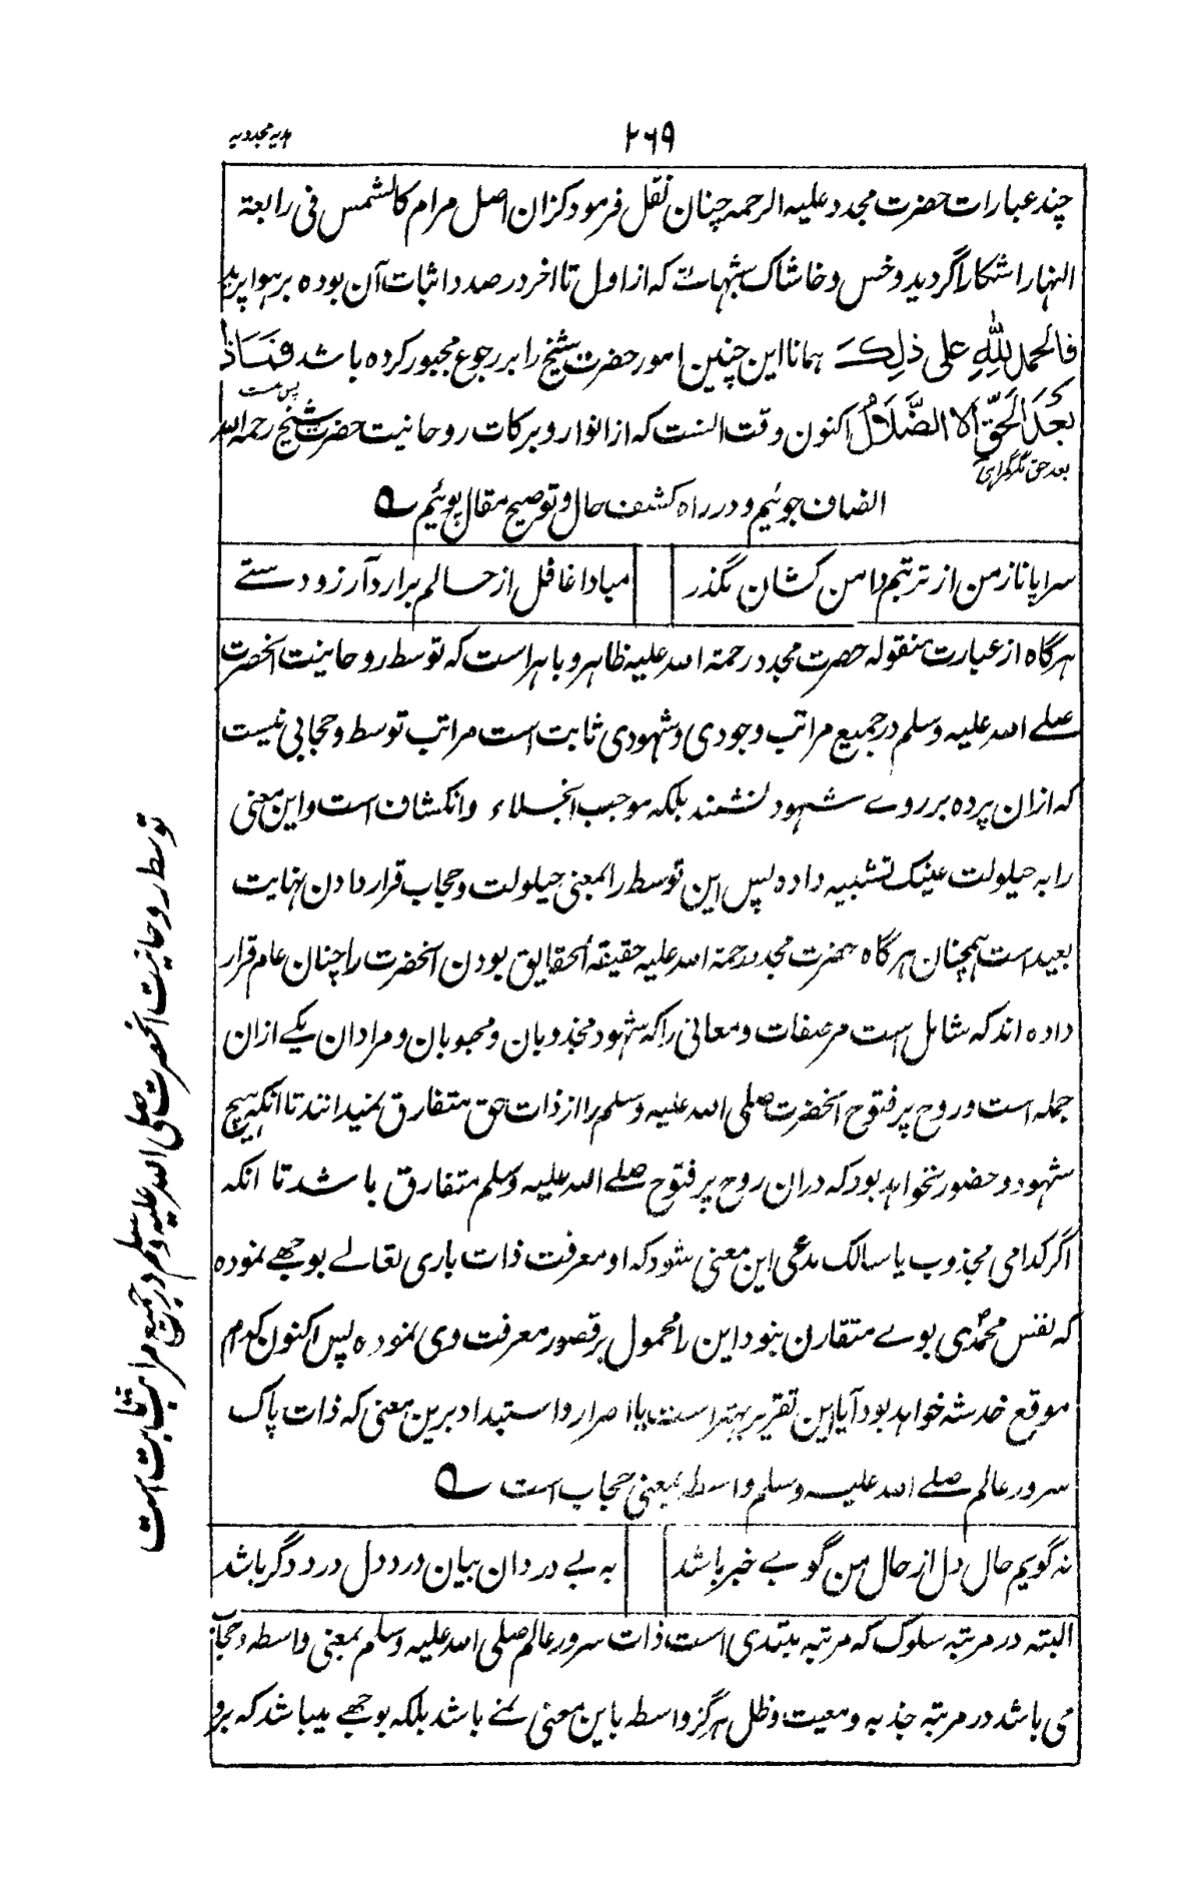 هدیه مجددیه
۲۶۹
چند عبارات حضرت مجدد علیه الرحمه چنان نقل فرمود کزان اصل مرام کالشمس فی رابعة
النهار اشکارا گردید و خس و خاشاک شبهات که از اول تا اخر در صدد اثبات آن بوده بر هوا پرید
فالحمد لله علی ذلک همانا این چنین امور حضرت شیخ را بر رجوع مجبور کرده باشد فَمَاذَا
پس ست
بَعْدَ الْحَقِّ اِلَّا الضَّلَالُ اکنون وقت النست که از انوار و برکات روحانیت حضرت شیخ رحمه الله
بعد حق مگر گمراهی
الضاف جوئیم و در راه کشف حال و توضیح مقال پوئیم
سراپا ناز من از تربتم دامن کشان مگذر
مبادا غافل از حالم برارد آرزو دستے
هرگاه از عبارت منقوله حضرت مجدد رحمة الله علیه ظاهر و باهر است که توسط روحانیت انحضرت
صلے الله علیه وسلم در جمیع مراتب وجودی و شهودی ثابت است مراتب توسط و حجابی نیست
که ازان پرده بر روے شهود نشند بلکه موجب انجلاء وانکشاف است و این معنی
را به حیلولت عینک تشبیه داده پس این توسط را بمعنی حیلولت و حجاب قرار دادن نهایت
بعید است همچنان هرگاه حضرت مجدد رحمة الله علیه حقیقة الحقایق بودن انحضرت را چنان عام قرار
داده اند که شامل است مر صفات و معانی را که شهود مجذوبان و محبوبان و مرادان یکے ازان
جمله است و روح پر فتوح انحضرت صلی الله علیه وسلم را از ذات حق متفارق نمیدانند تا انکه هیچ
شهود و حضور نخواهد بود که دران روح پر فتوح صلے الله علیه وسلم متفارق باشد تا انکه
اگر کدامی مجذوب یا سالک مدعی این معنی شود که او معرفت ذات باری تعالے بوجهے نموده
که نفس محمدی بوے متقارن نبود این را محمول بر قصور معرفت وی نموده پس اکنون کدام
موقع خدشه خواهد بود آیا این تقریر بهتر است یا اصرار و استبداد برین معنی که ذات پاک
سرور عالم صلے الله علیه وسلم واسطه بمعنی حجاب است
نه گویم حال دل از حال من گو بے خبر باشد
به بے دردان بیان درد دل درد دگر باشد
البته در مرتبه سلوک که مرتبه مبتدی است ذات سرور عالم صلی الله علیه وسلم بمعنی واسطه و حجاب
می باشد در مرتبه جذبه و معیت و ظل هرگز واسطه باین معنی نمے باشد بلکه بوجهے میباشد که برو
توسط روحانیت انحضرت صلی الله علیه وسلم در جمیع مراتب ثابت است